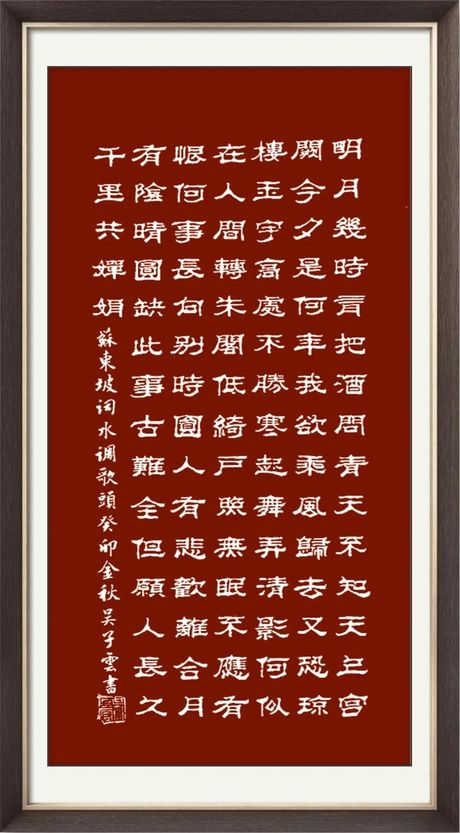 明月幾時有把酒問青天不知天上宮
闕今夕是何年我欲乘風歸去又恐瓊
樓玉宇高處不勝寒起舞弄清影何似
在人間轉朱閣低綺戶照無眠不應有
恨何事長向別時圓人有悲歡離合月
有陰晴圓缺此事古難全但願人長久
千里共嬋娟 蘇東坡词水调歌頭癸卯金秋吴子雲書